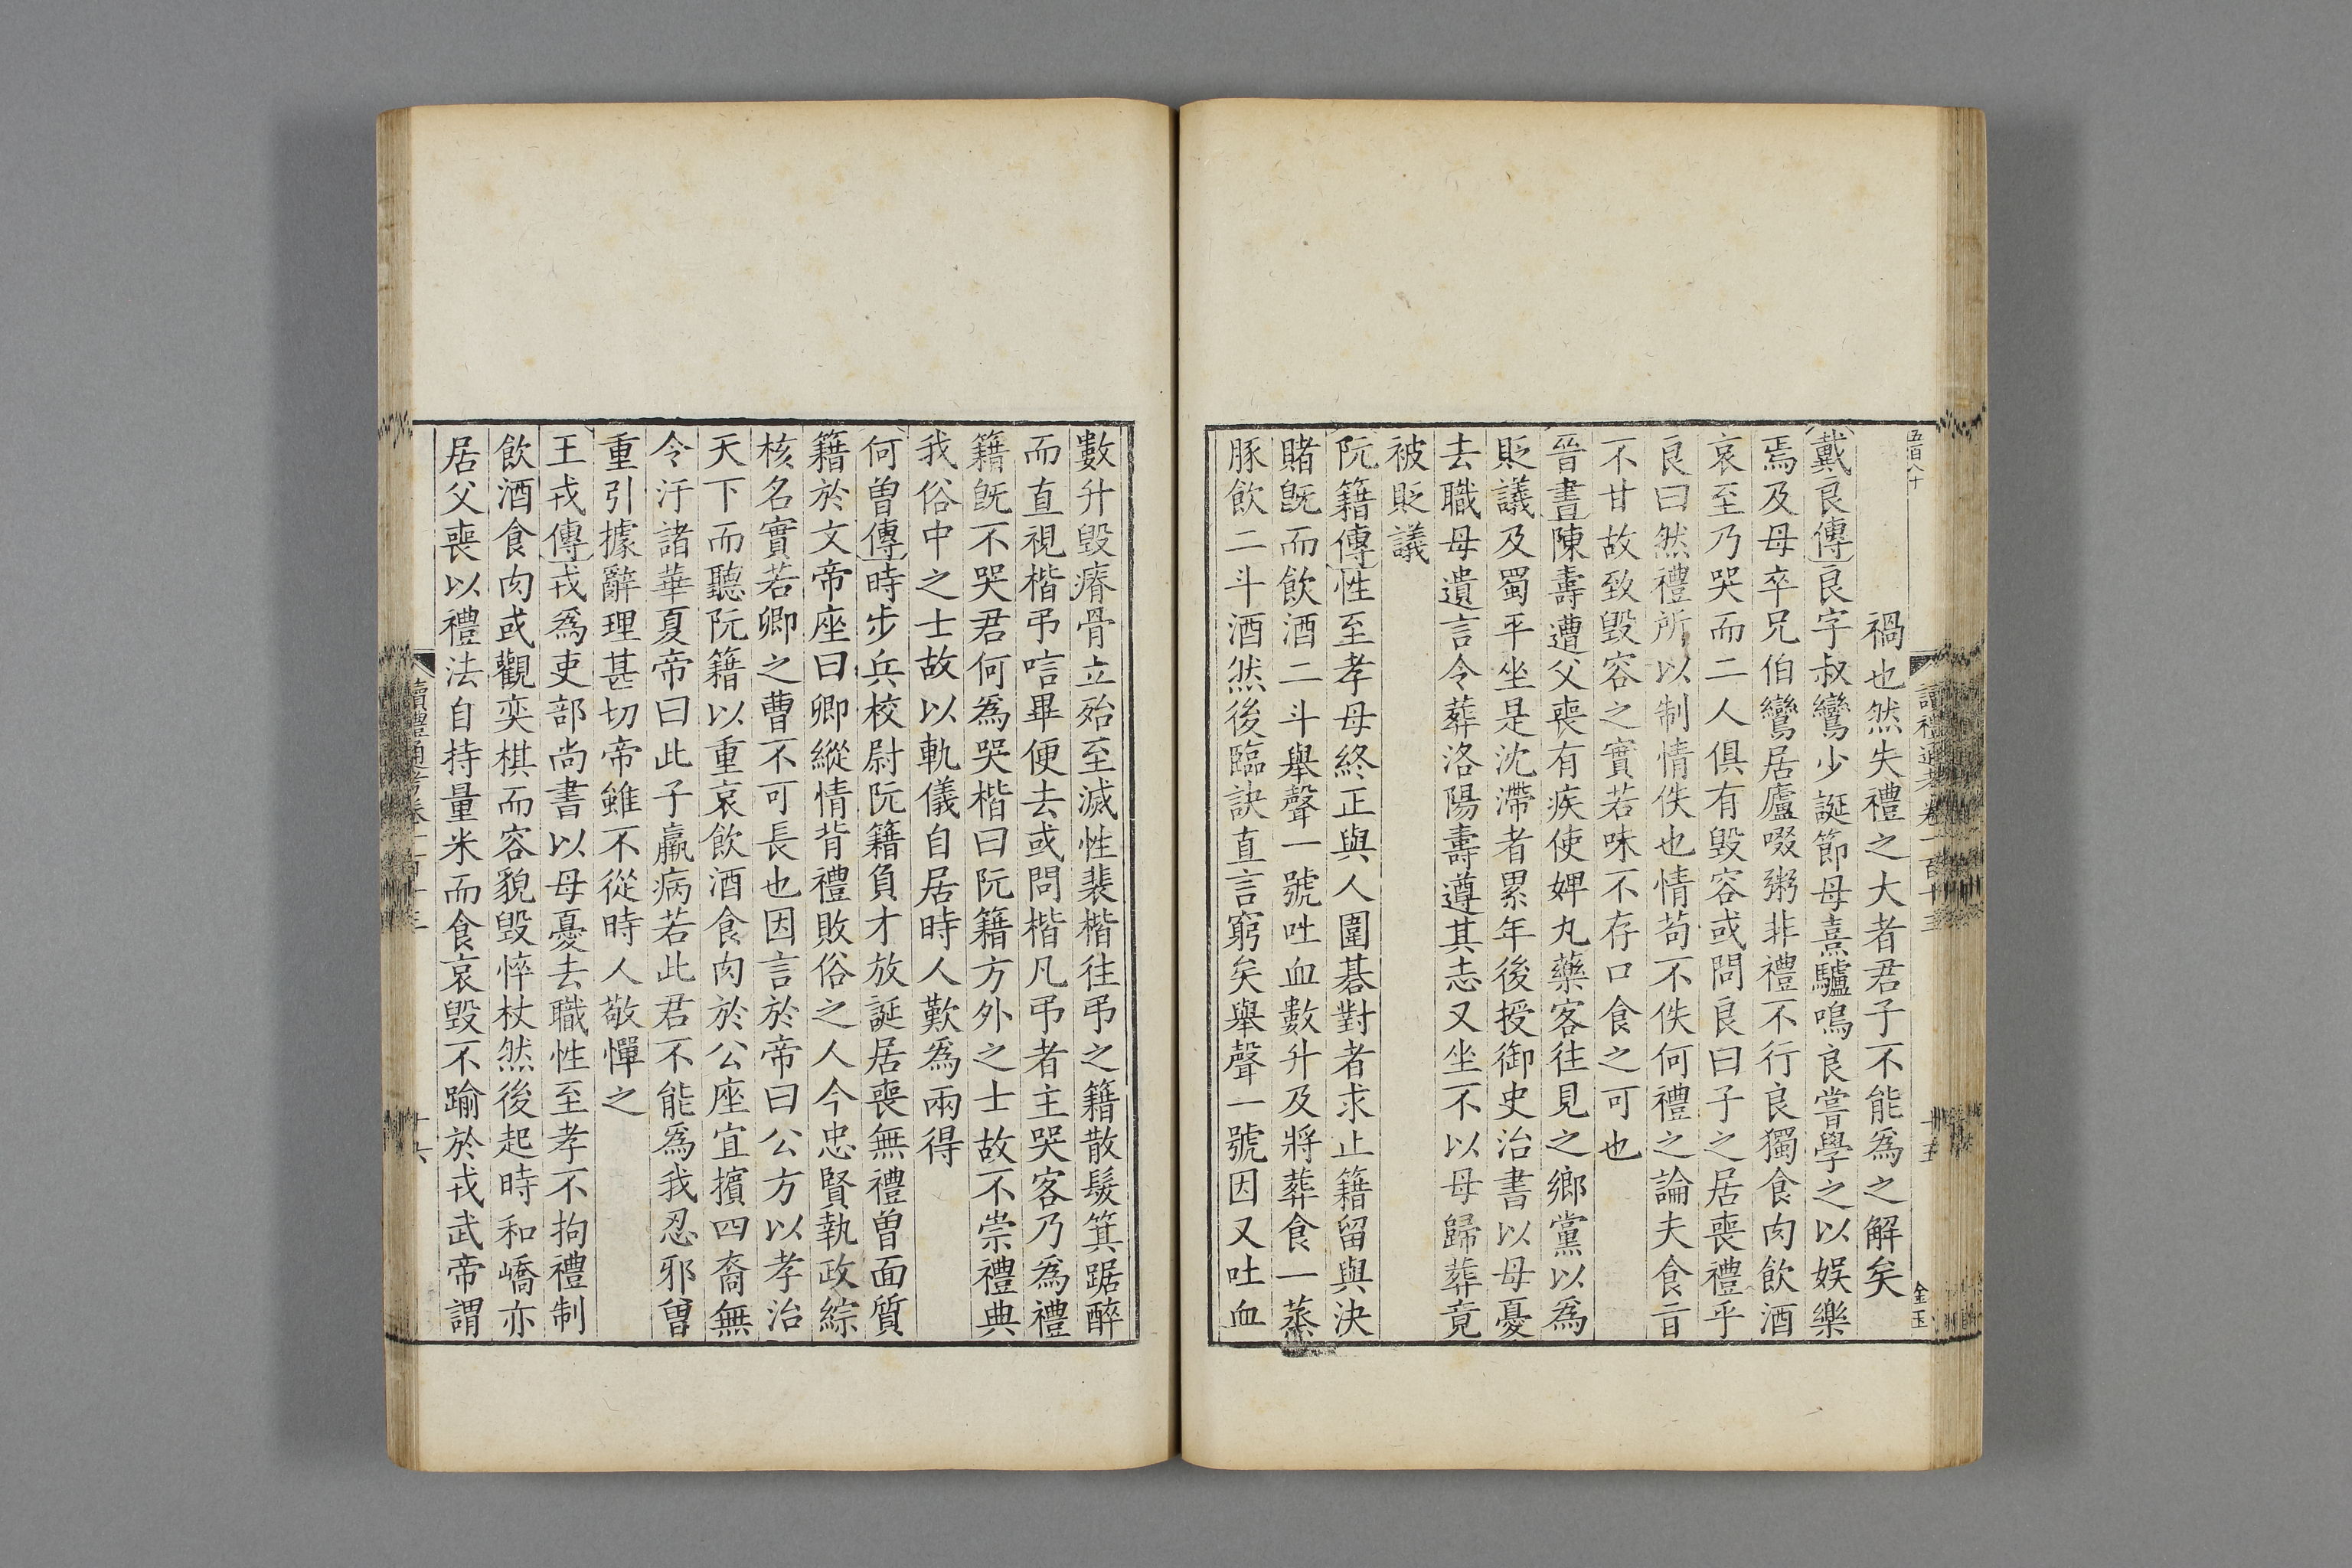 五百八十
讀禮通考卷一百十三
十五
金玉
禍也然失禮之大者君子不能爲之解矣
戴良傳良字叔鸞少誕節母憙驢鳴良嘗學之以娛樂
焉及母卒兄伯鸞居廬啜粥非禮不行良獨食肉飲酒
哀至乃哭而二人俱有毀容或問良曰子之居喪禮乎
良曰然禮所以制情佚也情苟不佚何禮之論夫食旨
不甘故致毀容之實若味不存口食之可也
晉書陳壽遭父喪有疾使婢丸藥客往見之鄉黨以爲
貶議及蜀平坐是沈滯者累年後授御史治書以母憂
去職母遺言令葬洛陽壽遵其志又坐不以母歸葬竟
被貶議
阮籍傳性至孝母終正與人圍碁對者求止籍留與決
賭旣而飲酒二斗舉聲一號吐血數升及將葬食一蒸
豚飲二斗酒然後臨訣直言窮矣舉聲一號因又吐血
數升毀瘠骨立殆至滅性裴楷往弔之籍散髮箕踞醉
而直視楷弔唁畢便去或問楷凡弔者主哭客乃爲禮
籍旣不哭君何爲哭楷曰阮籍方外之士故不崇禮典
我俗中之士故以軌儀自居時人歎爲兩得
何曾傳時步兵校尉阮籍負才放誕居喪無禮曾面質
籍於文帝座曰卿縱情背禮敗俗之人今忠賢執政綜
核名實若卿之曹不可長也因言於帝曰公方以孝治
天下而聽阮籍以重哀飲酒食肉於公座宜擯四裔無
令汙諸華夏帝曰此子羸病若此君不能爲我忍邪曾
重引據辭理甚切帝雖不從時人敬憚之
王戎傳戎爲吏部尚書以母憂去職性至孝不拘禮制
飲酒食肉或觀奕棋而容貌毀悴杖然後起時和嶠亦
居父喪以禮法自持量米而食哀毀不踰於戎武帝謂
讀禮通考卷一百十三
十六